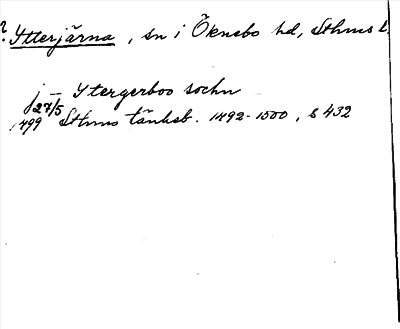 ? Ytterjärna, sn i Öknebo hd, Sthms l.
j – Ytergerboo sochn
27/5
1499 Sthms tänkeb. 1492-1500, s 432